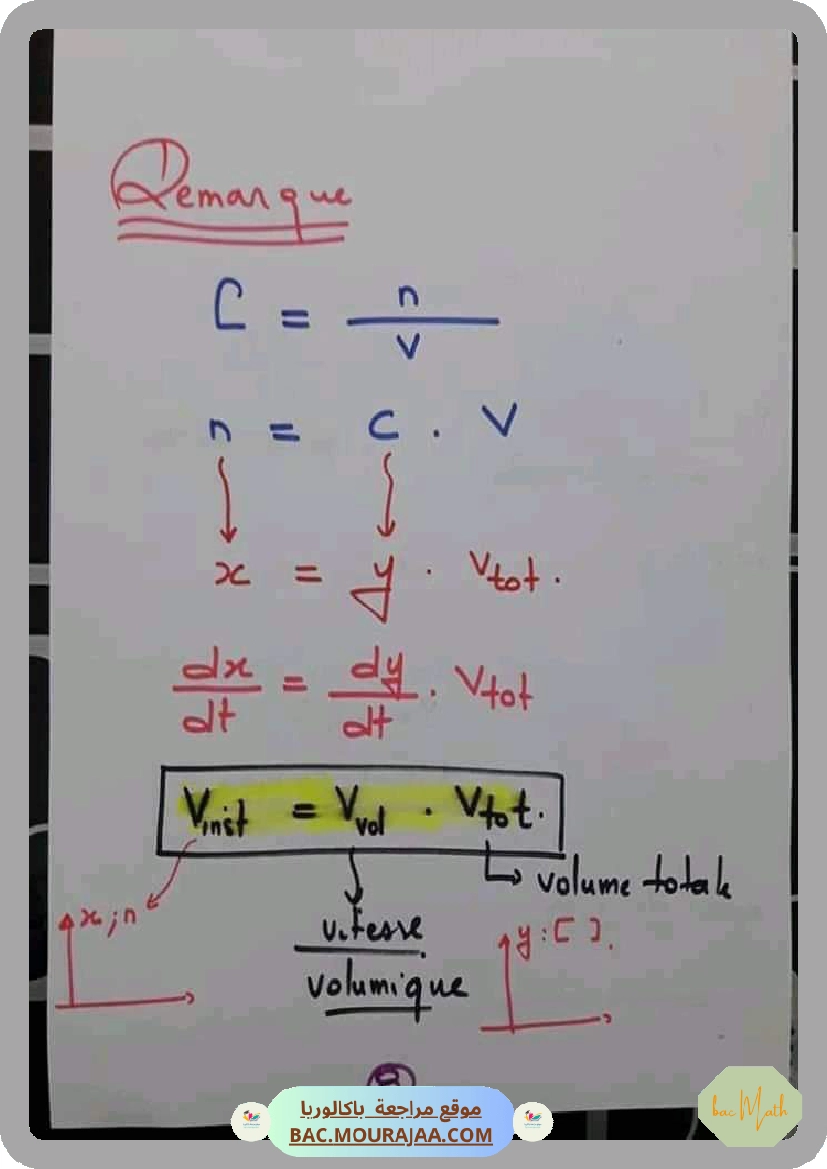 Remarque
C = n / V
n = C . V
x = y . Vtot.
dx/dt = dy/dt . Vtot
Vinst = Vvol . Vtot.
volume totale
x ; n
vitesse
volumique
y : [ ].
موقع مراجعة باكالوريا
BAC.MOURAJAA.COM
bac Math